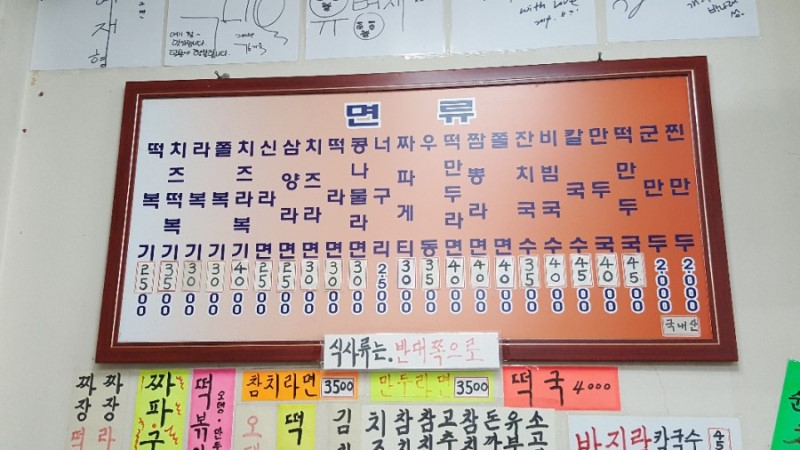 예재형
with Love
면류
떡복기 2500
치즈떡복기 3500
라복기 3000
쫄복기 3000
치즈라복기 4000
신라면 2500
삼양라면 2500
치즈라면 3000
떡라면 3000
콩나물라면 3000
너구리 2500
짜파게티 3000
우동 3500
떡만두라면 4000
짬뽕라면 4000
쫄면 4000
잔치국수 3500
비빔국수 4000
칼국수 4500
만두국 4000
떡만두국 4500
군만두 2000
찐만두 2000
국내산
식사류는. 반대쪽으로
짜장떡
짜장라
짜파구
떡볶
참치라면 3500
만두라면 3500
떡국 4000
떡
김
치
참치
참치
고추
돈까
유부
소고
바지락 칼국수 45